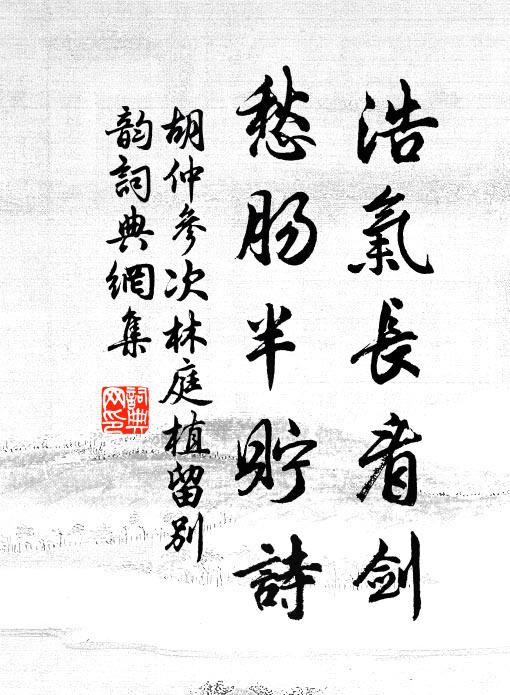 浩氣長看劍
愁腸半貯詩
胡仲參次林庭植留別
韵詞典網集
詞典网印